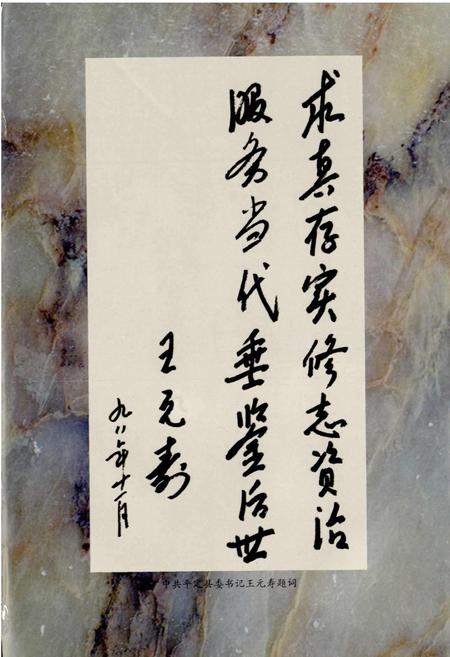 求真存实修志资治
服务当代垂鉴后世
王元寿
九八年十一月
中共平定县委书记王元寿题词